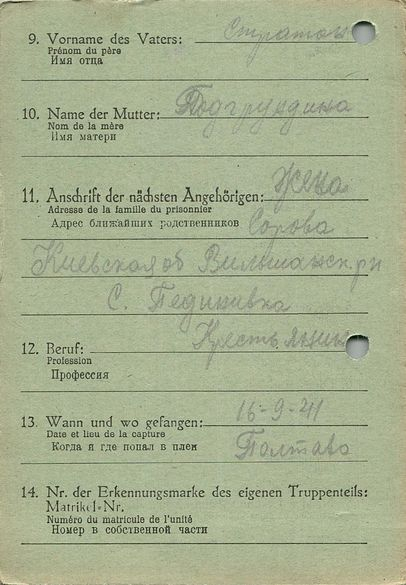 9. Vorname des Vaters: Стратон
Prénom du père
Имя отца
10. Name der Mutter: Подгрундина
Nom de la mère
Имя матери
11. Anschrift der nächsten Angehörigen: жена
Adresse de la famille du prisonnier
Адрес ближайших родственников Сорова
Киевская об Вильшанск. рн
С. Пединовка
12. Beruf: Крестьянин
Profession
Профессия
13. Wann und wo gefangen: 16-9-41
Date et lieu de la capture
Когда я где попал в плен Полтава
14. Nr. der Erkennungsmarke des eigenen Truppenteils:
Matrikel-Nr.
Numéro du matricule de l'unité
Номер в собственной части